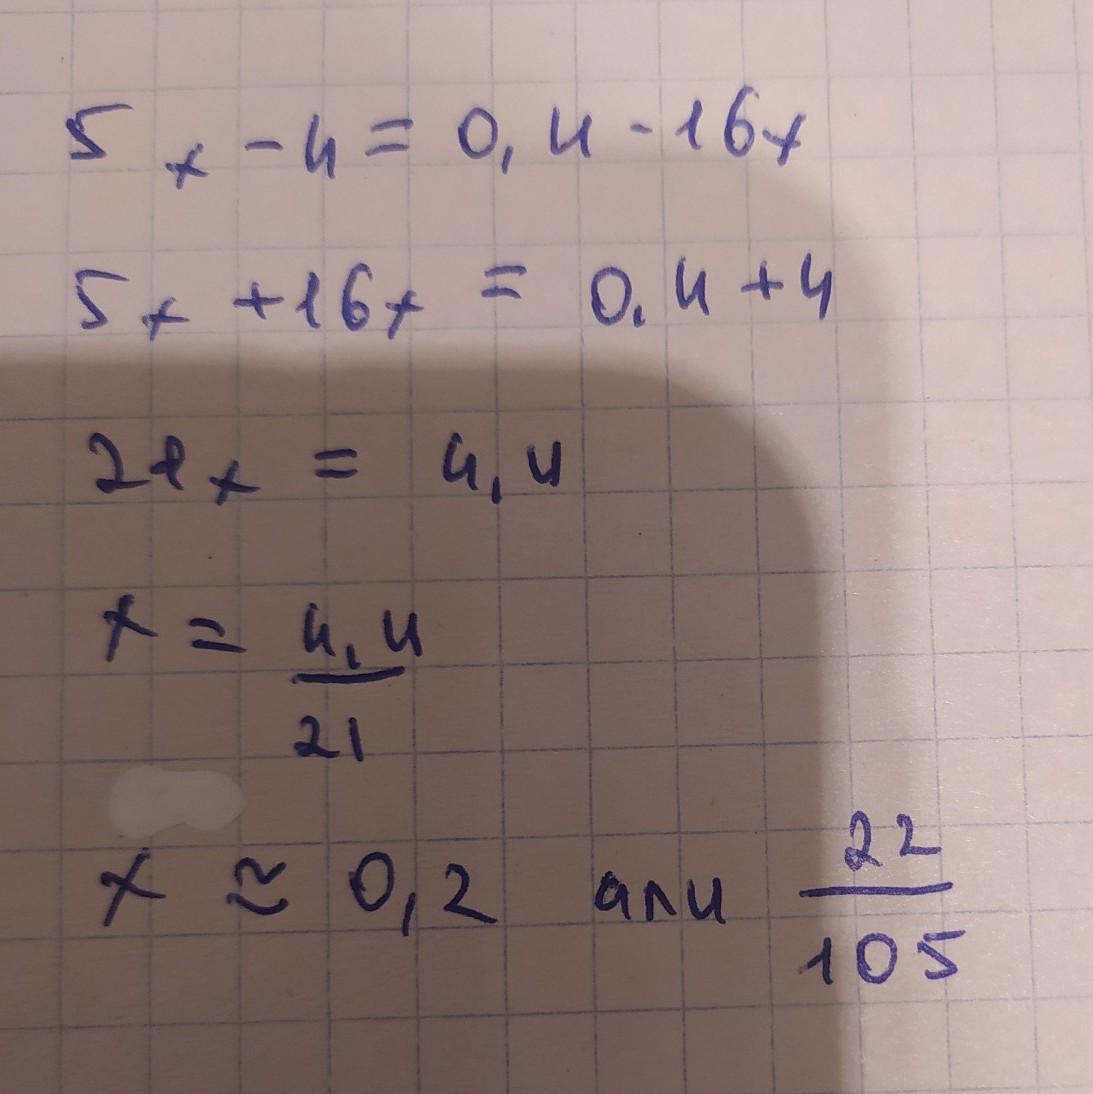 5x - 4 = 0,4 - 16x
5x + 16x = 0,4 + 4
21x = 4,4
x = 4,4/21
x ≈ 0,2 или 22/105